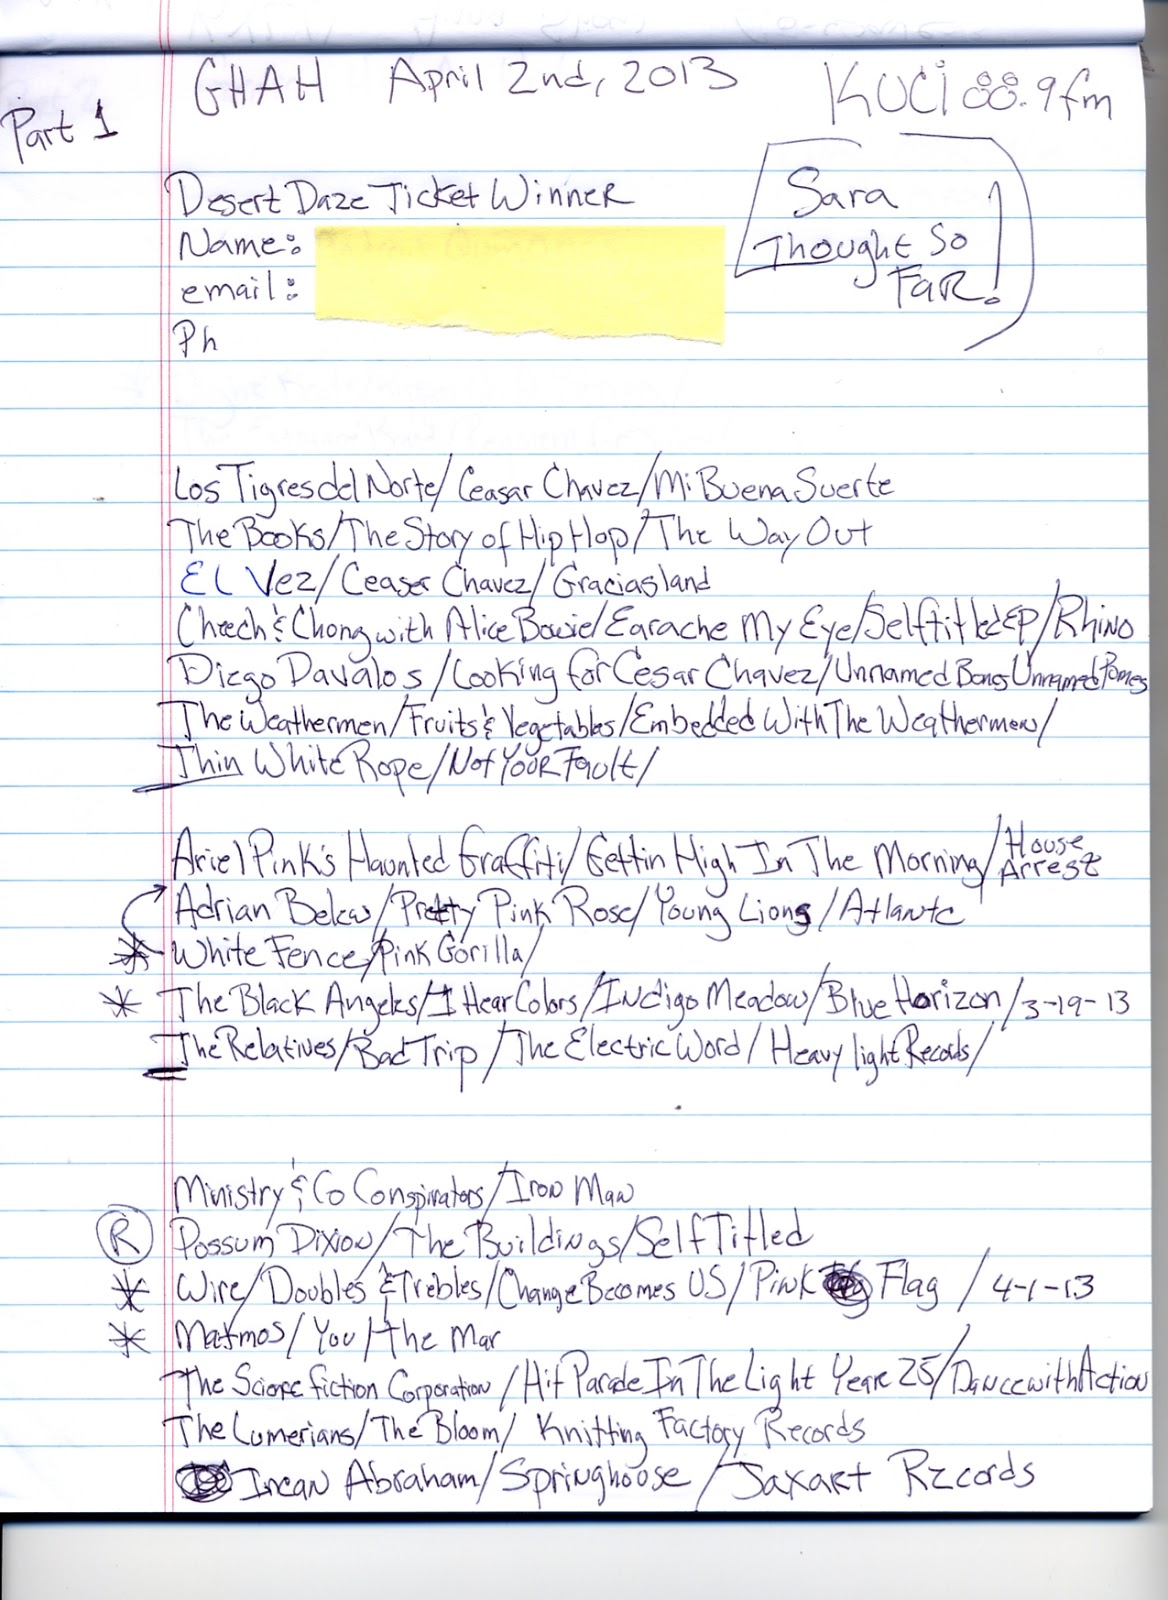 GHAH April 2nd, 2013 KUCI 88.9fm
Part 1
Desert Daze Ticket Winner
Name:
email:
Ph
Sara
Thought So
Far!
Los Tigres del Norte/Ceasar Chavez/Mi Buena Suerte
The Books/The Story of Hip Hop/The Way Out
EL Vez/Ceaser Chavez/Graciasland
Cheech & Chong with Alice Bowie/Earache My Eye/Self titled EP/Rhino
Diego Davalos/Looking for Cesar Chavez/Unnamed Bones Unnamed Pomes
The Weathermen/Fruits & Vegetables/Embedded With The Weathermen/
Thin White Rope/Not Your Fault/
Ariel Pink's Haunted Graffiti/Gettin High In The Morning/House Arrest
Adrian Belew/Pretty Pink Rose/Young Lions/Atlantc
* White Fence/Pink Gorilla/
* The Black Angels/I Hear Colors/Indigo Meadow/Blue Horizon/3-19-13
The Relatives/Bad Trip/The Electric Word/Heavy Light Records/
Ministry & Co Conspirators/Iron Man
R Possum Dixion/The Buildings/Self Titled
* Wire/Doubles & Trebles/Change Becomes US/Pink Flag/4-1-13
* Matmos/You/The Mar
The Science fiction Corporation/Hit Parade In The Light Year 25/Dance with Action
The Lumerians/The Bloom/Knitting Factory Records
Incan Abraham/Springhouse/Jaxart Records